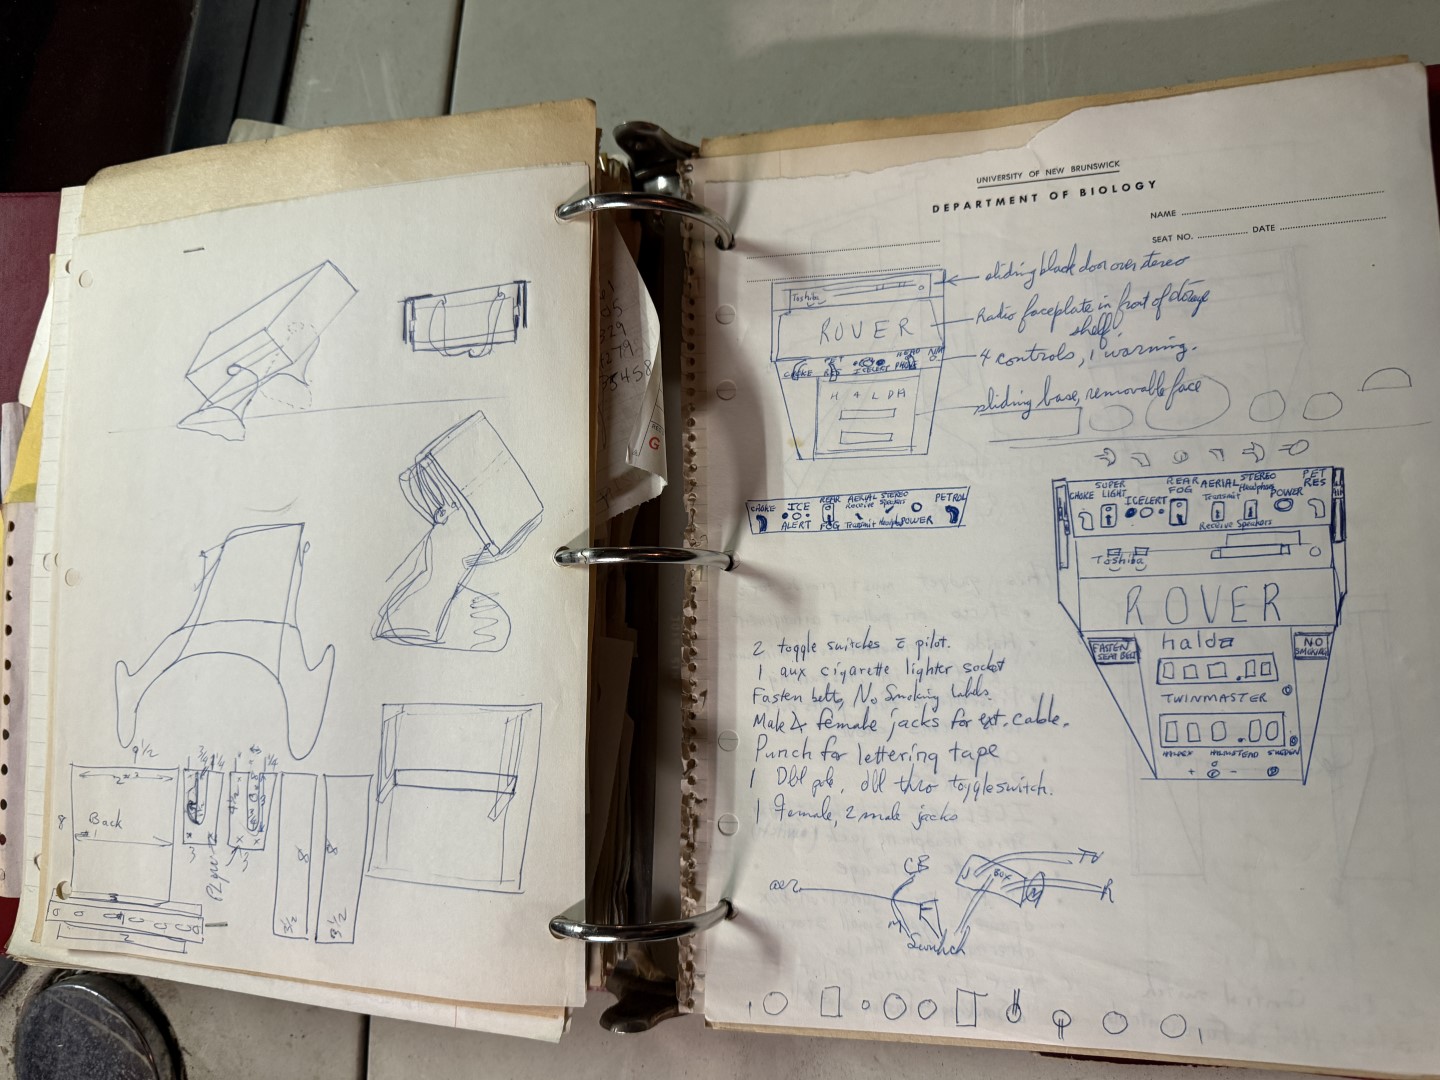 9 1/2
3/4
1/4
1/4
2
4 1/2
8
Back
#1
3
3
Plywood
8
8
3 1/2
3 1/2
2
05
329
G
UNIVERSITY OF NEW BRUNSWICK
DEPARTMENT OF BIOLOGY
NAME
SEAT NO. DATE
sliding black door over stereo
Toshiba
Radio faceplate in front of storage
shelf.
ROVER
4 controls, 1 warning.
CHOKE PET RES ICELERT HEAD PHONE
sliding base, removable face
HALDA
CHOKE ICE ALERT REAR FOG AERIAL Receive Transmit STEREO Speakers Headph POWER PETROL
CHOKE SUPER LIGHT ICELERT REAR FOG AERIAL Transmit Receive STEREO Headphone Speakers POWER PET RES
Toshiba
ROVER
FASTEN SEAT BELT
halda
NO SMOKING
TWINMASTER
HALDEX HALMSTEAD SWEDEN
+ -
2 toggle switches c̄ pilot.
1 aux cigarette lighter socket
Fasten belts, No Smoking labels.
Male & female jacks for ext. cable.
Punch for lettering tape
1 Dbl pole, dbl thro toggle switch.
1 Female, 2 male jacks
CB
TV
aer.
BOX
R
F
M
Switch